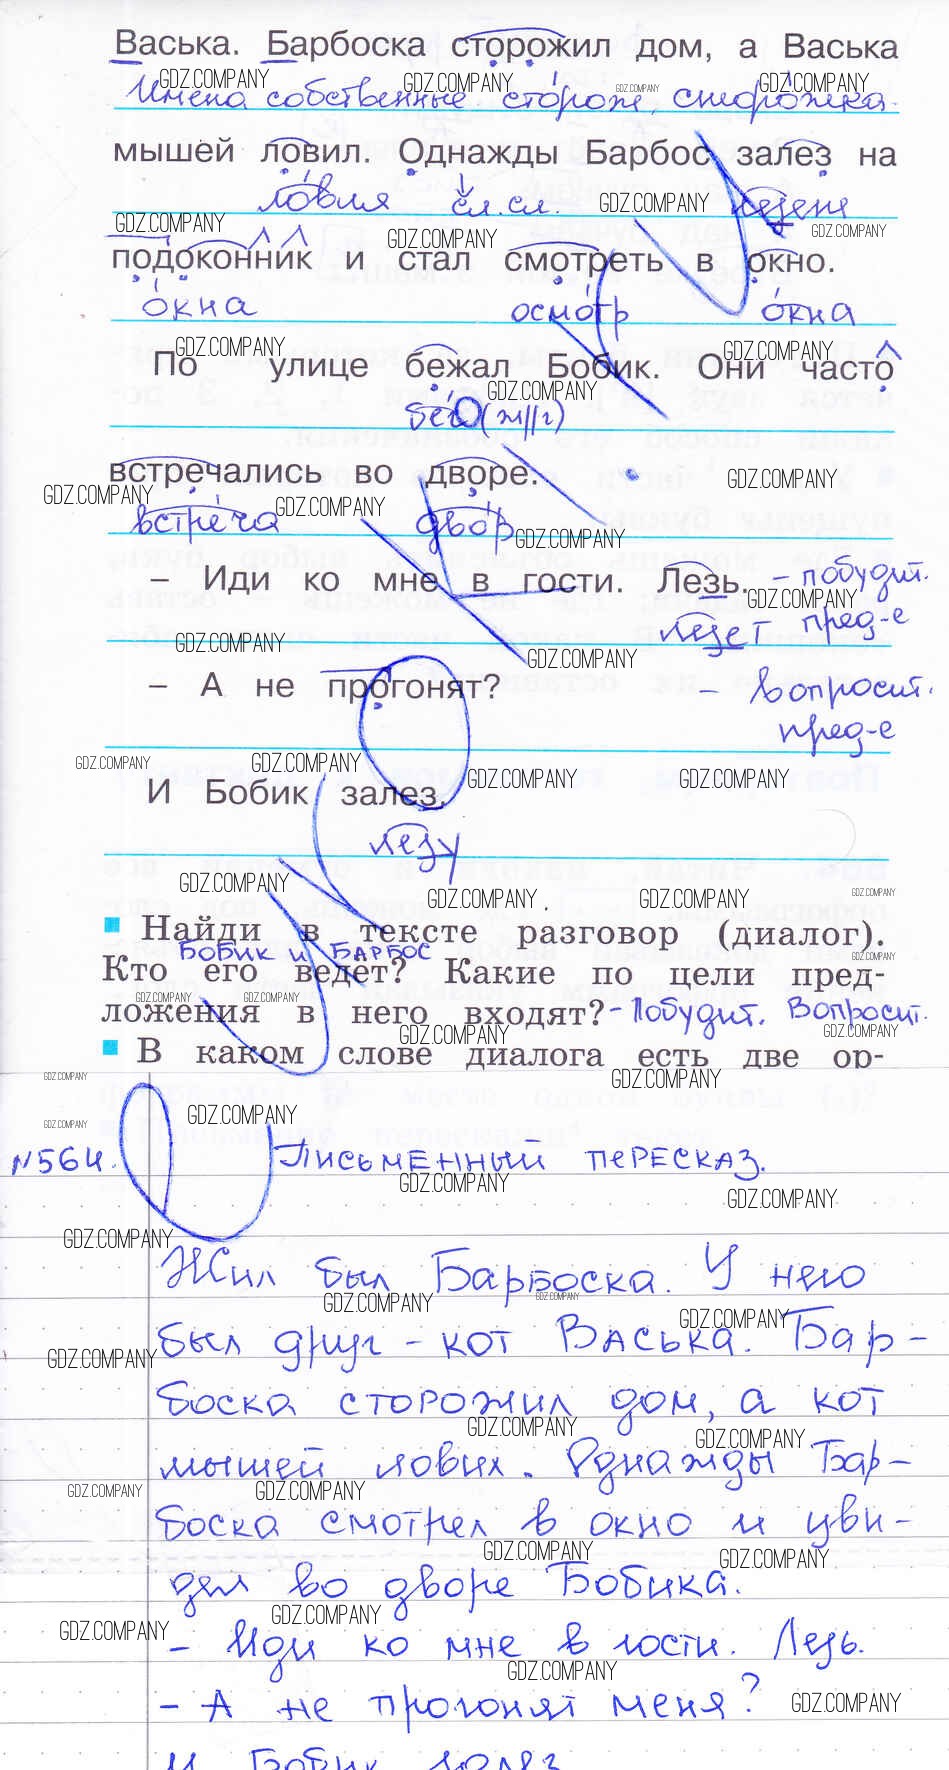 Васька. Барбоска сторожил дом, а Васька
Имена собственные сторож, сторожка.
мышей ловил. Однажды Барбос залез на
ловля сл.сл. лезет
подоконник и стал смотреть в окно.
окна осмотр окна
По улице бежал Бобик. Они часто
бег (ж||г)
встречались во дворе.
встреча двор
– Иди ко мне в гости. Лезь. – побудит.
лезет пред-е
– А не прогонят? – вопросит.
пред-е
И Бобик залез.
лезу
Найди в тексте разговор (диалог).
БОБИК и БАРБОС
Кто его ведет? Какие по цели пред-
ложения в него входят? – Побудит. Вопросит.
В каком слове диалога есть две ор-
№564. Письменный пересказ.
Жил был Барбоска. У него
был друг – кот Васька. Бар-
боска сторожил дом, а кот
мышей ловил. Однажды Бар-
боска смотрел в окно и уви-
дел во дворе Бобика.
– Иди ко мне в гости. Лезь.
– А не прогонят меня?
И Бобик залез
GDZ.COMPANY